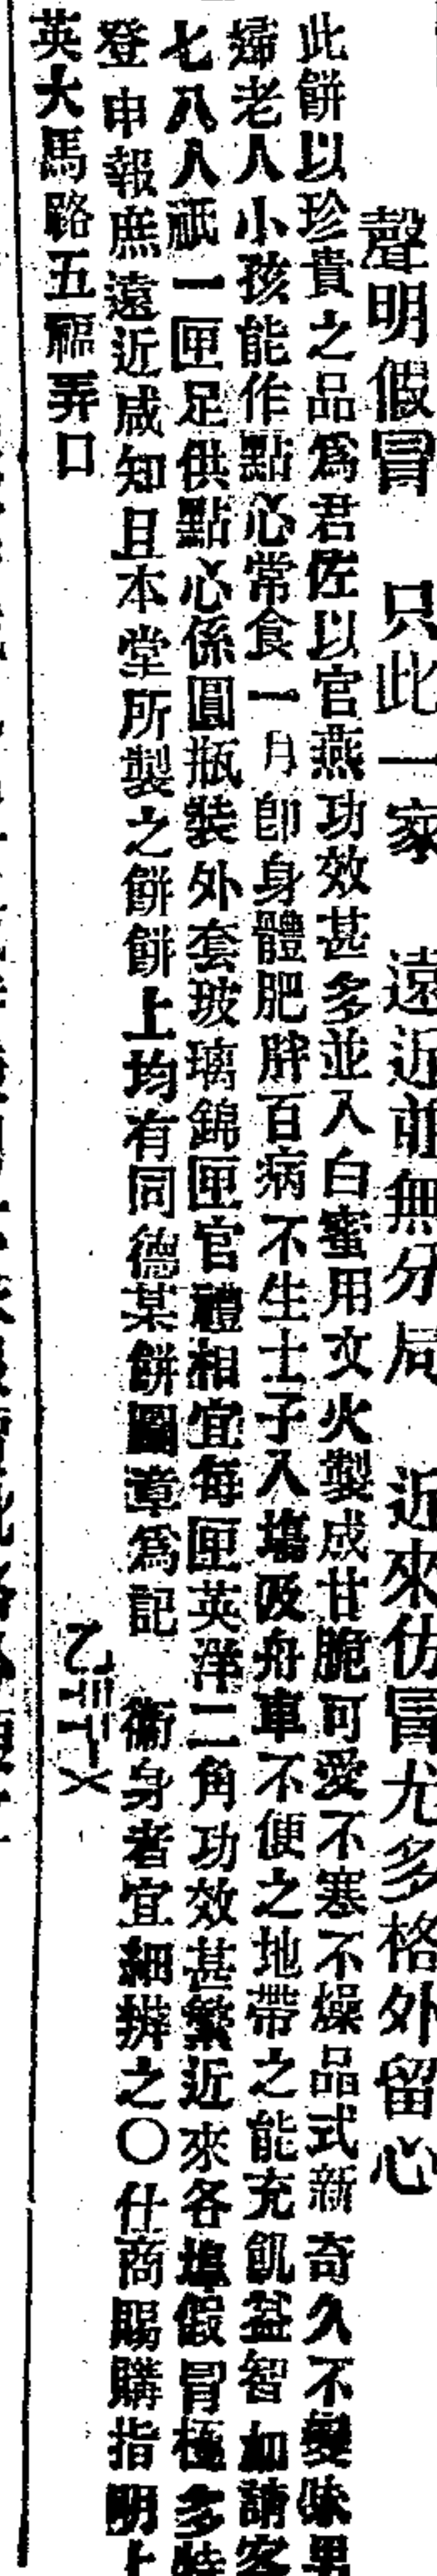 聲明假冒　只此一家　遠近並無分局　近來仿冒尤多格外留心
此餅以珍貴之品爲君佐以官燕功效甚多並入白蜜用文火製成甘脆可愛不寒不燥品式新奇久不變味男
婦老人小孩能作點心常食一月卽身體肥胖百病不生士子入塲及舟車不便之地帶之能充飢益智如請客
七八人祇一匣足供點心係圓瓶裝外套玻璃錦匣官禮相宜每匣英洋二角功效甚繁近來各埠假冒極多特
登申報庶遠近咸知且本堂所製之餅餅上均有同德某餅圖章爲記　衞身者宜細辨之〇仕商賜購指明上
英大馬路五福弄口